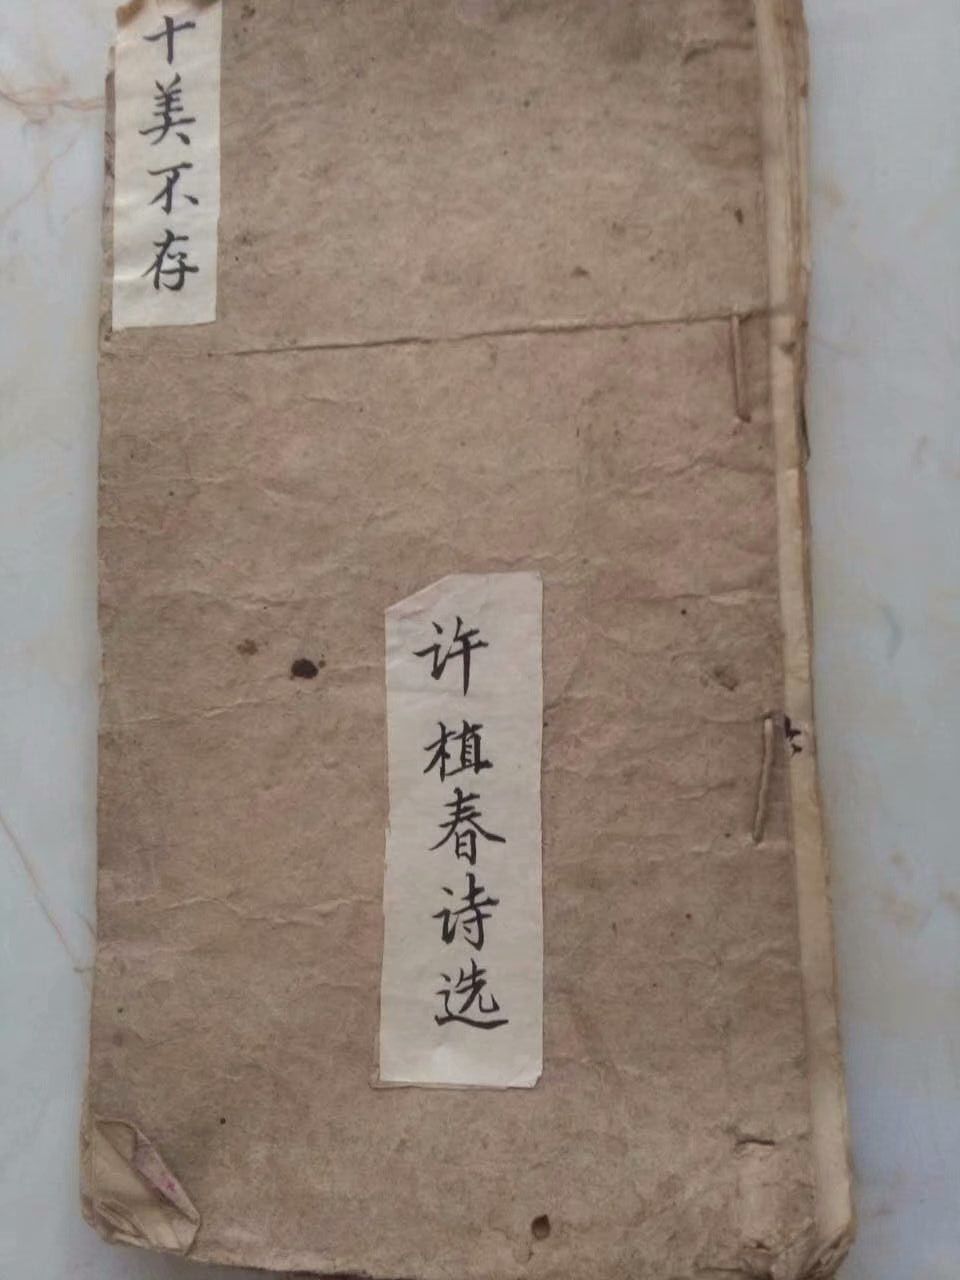 十美不存
许植春诗选